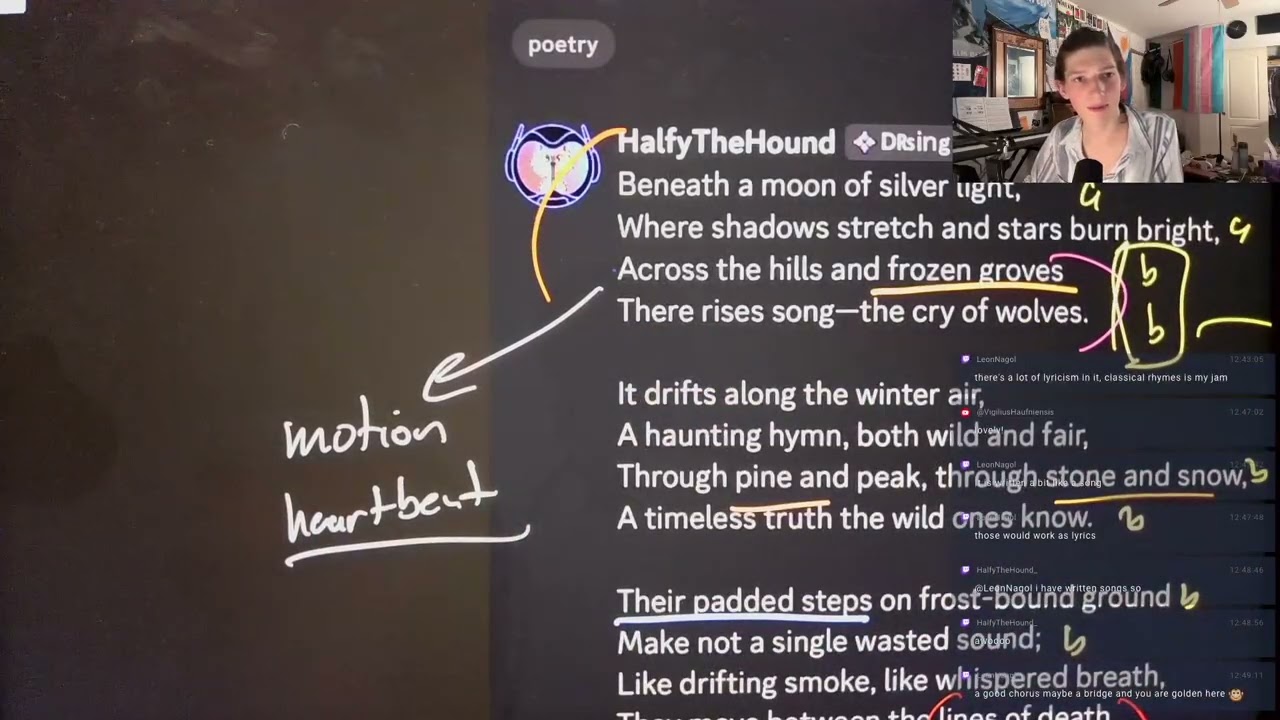 poetry
HalfyTheHound DRsing
Beneath a moon of silver light, a
Where shadows stretch and stars burn bright, a
Across the hills and frozen groves b
There rises song—the cry of wolves. b
motion
heartbeat
It drifts along the winter air,
A haunting hymn, both wild and fair,
Through pine and peak, through stone and snow, b
A timeless truth the wild ones know. b
Their padded steps on frost-bound ground b
Make not a single wasted sound; b
Like drifting smoke, like whispered breath,
They move between the lines of death
LeonNagol 12:43:05
there's a lot of lyricism in it, classical rhymes is my jam
@VigiliusHaufniensis 12:47:02
lovely!
LeonNagol
a bit like a song
12:47:48
those would work as lyrics
HalfyTheHound_ 12:48:46
@LeonNagol i have written songs so
HalfyTheHound_ 12:48:56
12:49:11
a good chorus maybe a bridge and you are golden here